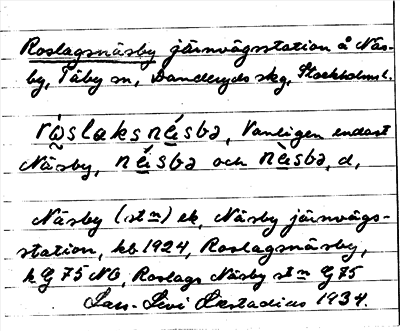 Roslagsnäsby järnvägsstation å Näs-
by, Täby sn, Danderyds skg, Stockholms l.
rò̰slaksnésbə, Vanligen endast
Näsby, nésbə och nèsbə, d,
Näsby (st n) ek, Näsby järnvägs-
station, kb 1924, Roslagsnäsby,
k G 75 NO, Roslags Näsby st n G 75
Lars-Levi Læstadius 1934.